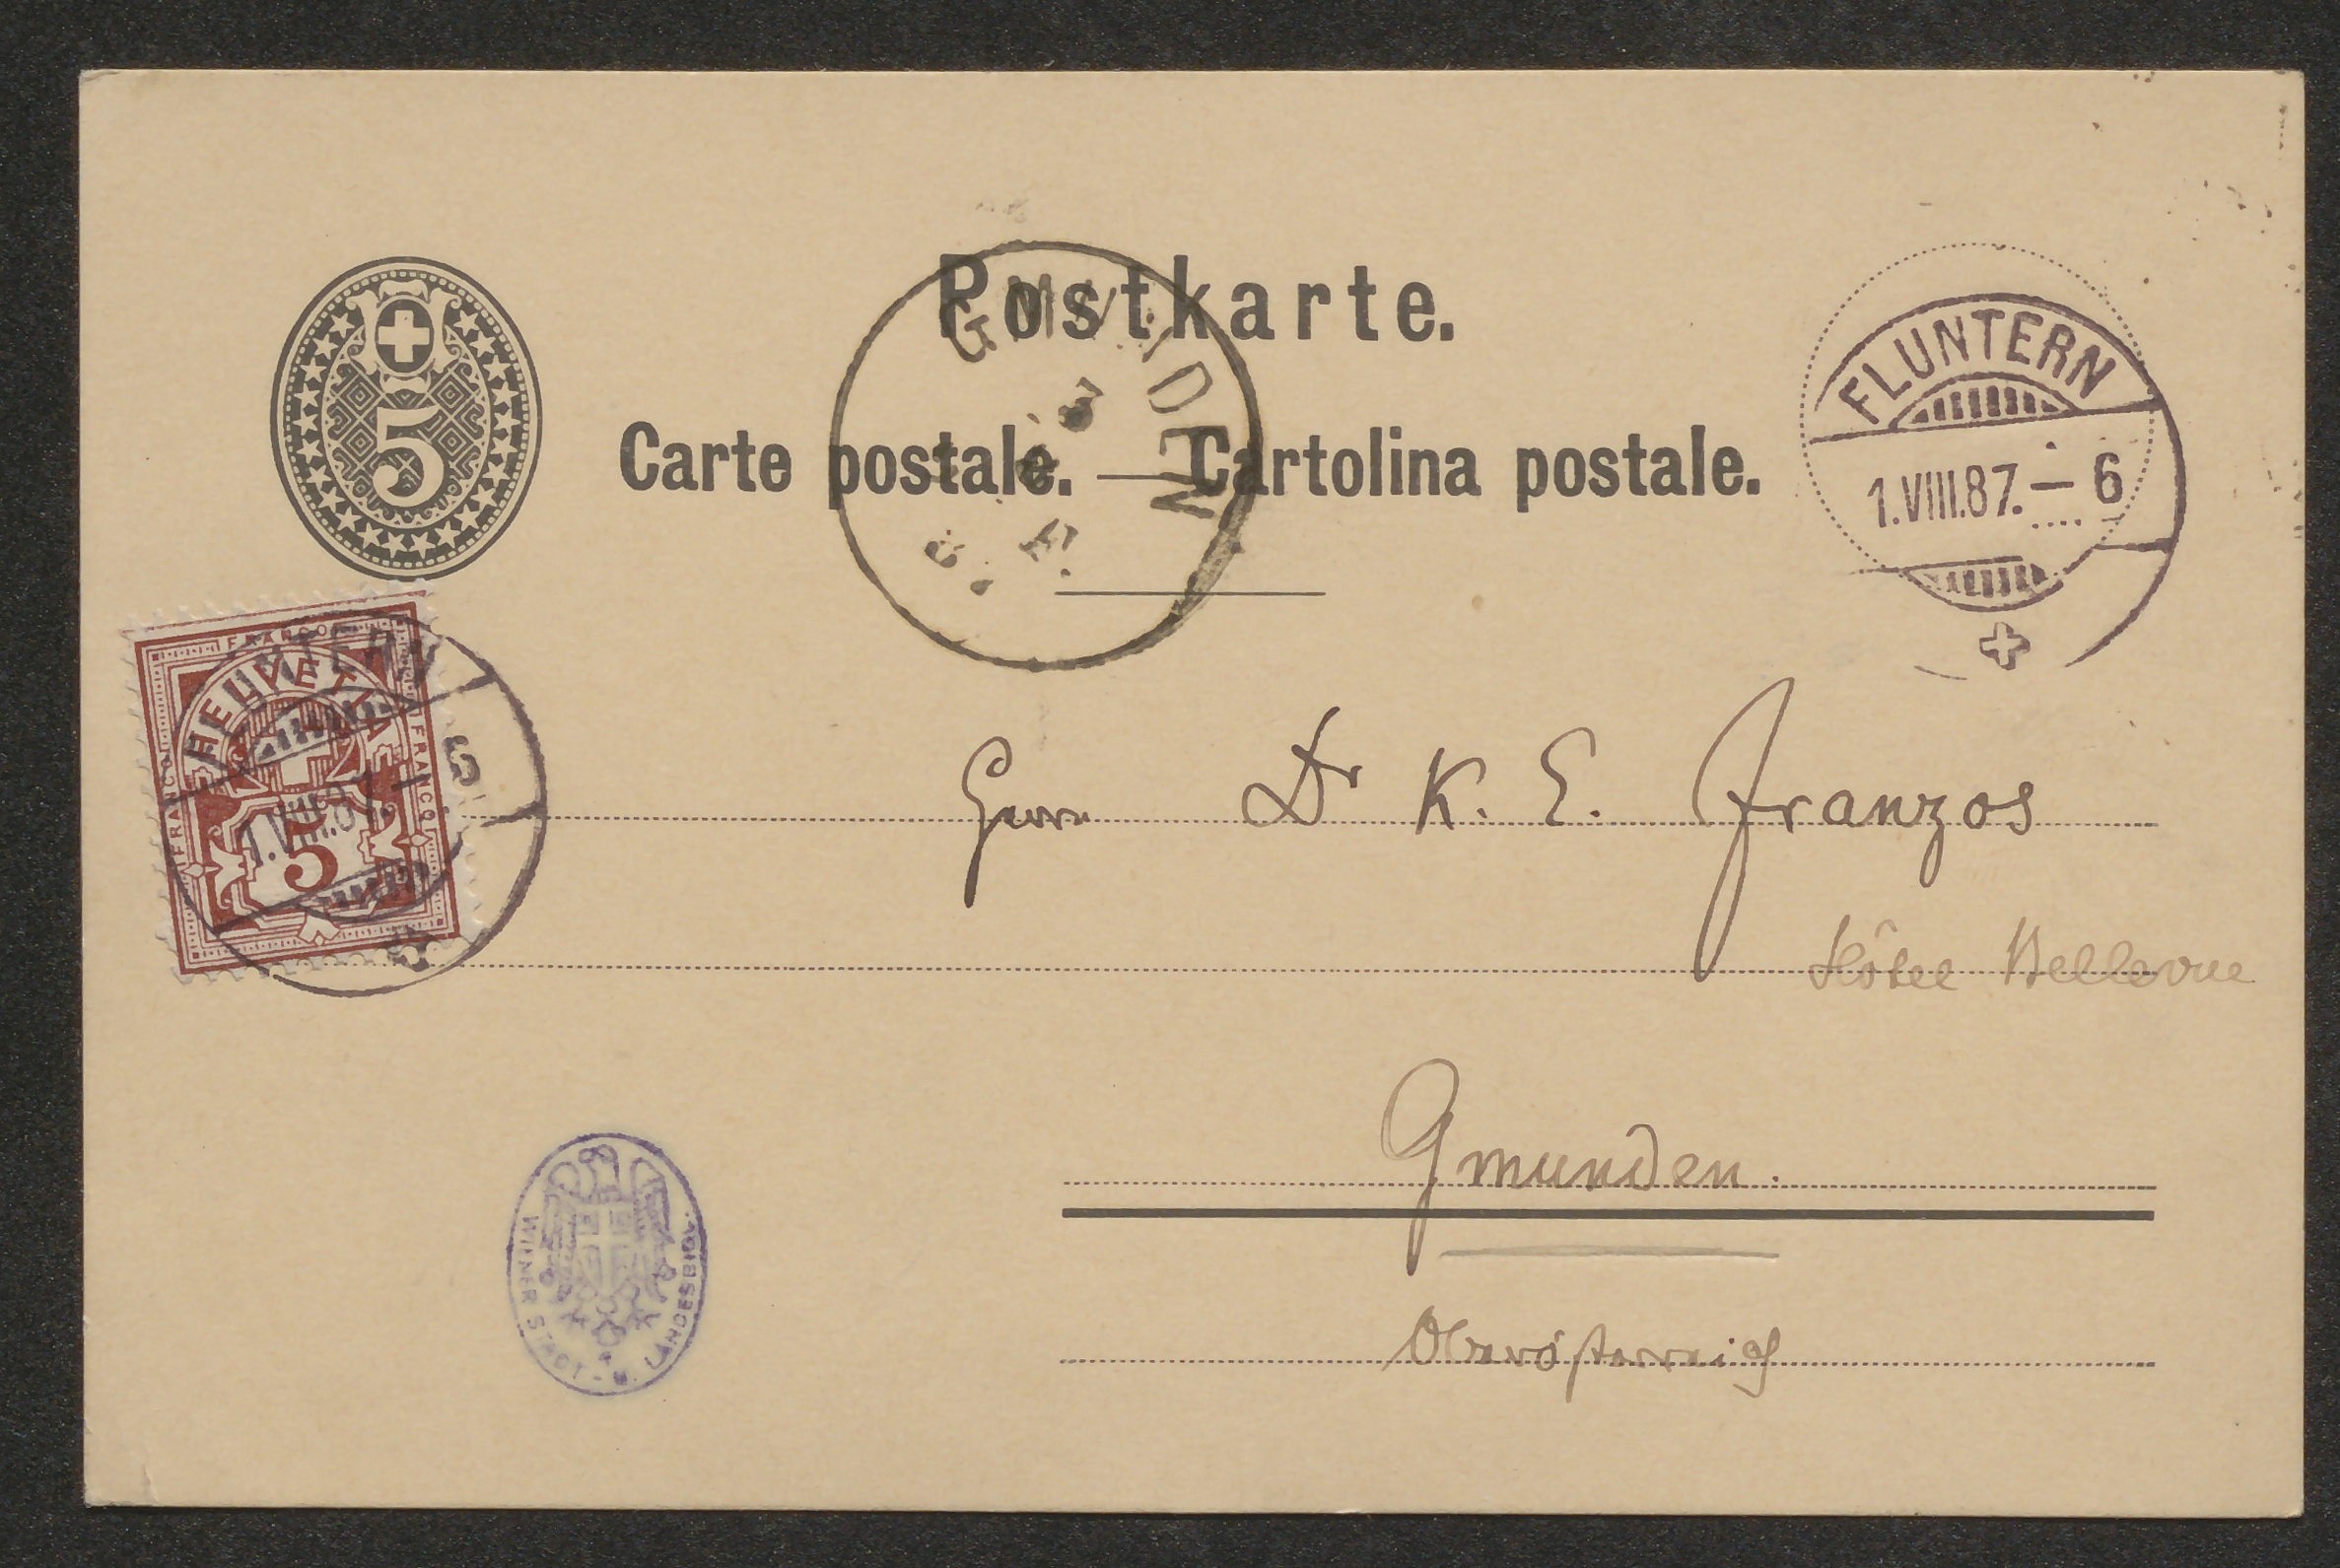 Postkarte.
Carte postale. — Cartolina postale.
5
GMUNDEN
FLUNTERN
1.VIII.87.– 6
FRANCO
HELVETIA
FRANCO
FRANCO
5
1.VIII.87.– 6
Herrn Dr K. E. Franzos
Hôtel Bellevue
Gmunden.
Oberösterreich
WIENER STADT - U. LANDESBIBL.